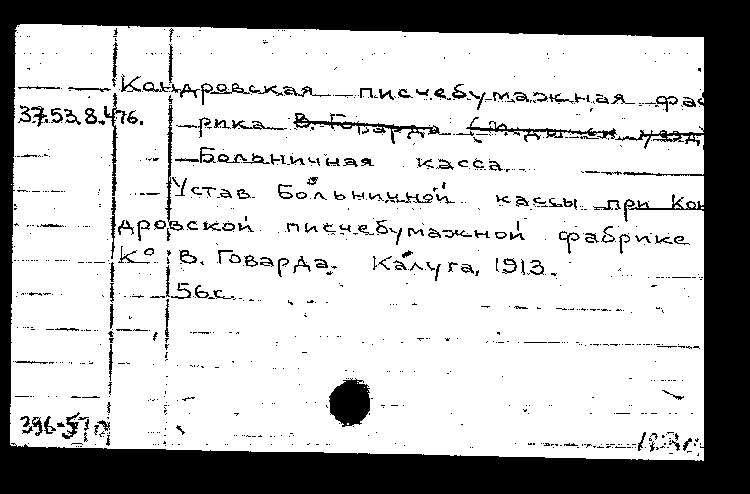 Кондровская писчебумажная фаб
37.53.8.476.
рика В. Говарда
Больничная касса.
Устав больничной кассы при Кон
дровской писчебумажной фабрике
К° В. Говарда. Калуга, 1913.
56с.
396-